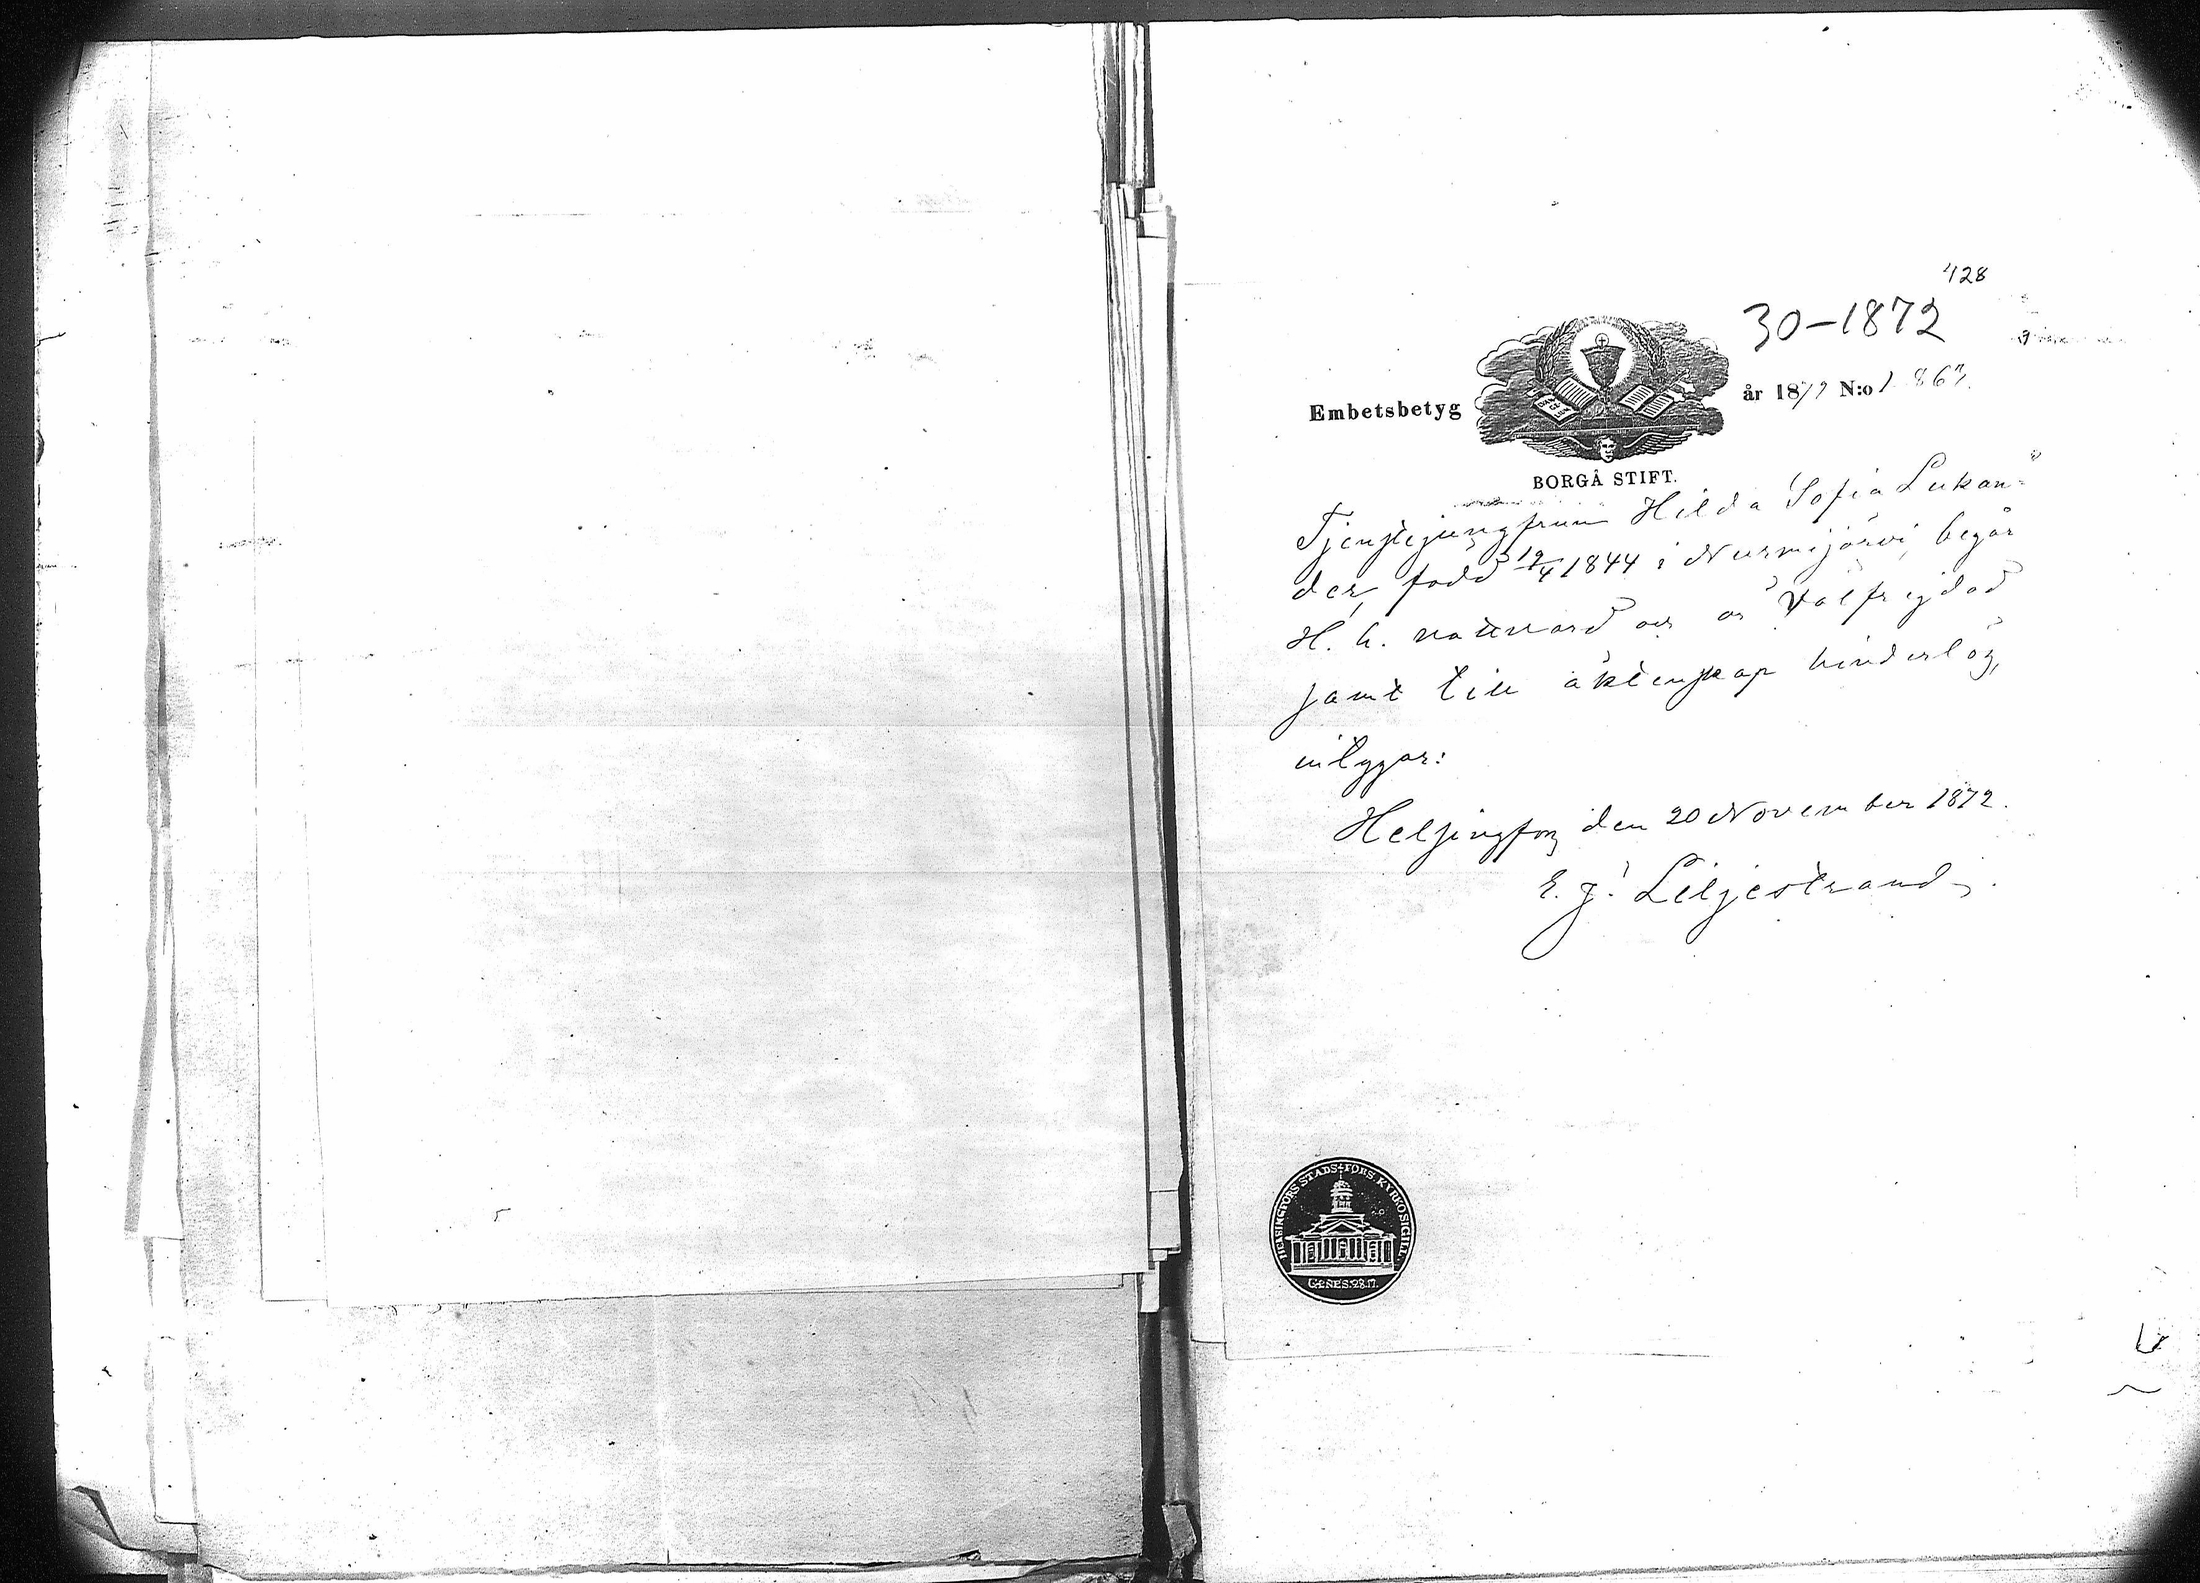 128
30-1872
Embetsbetyg
år 1872 N:o 1 867.
BORGÅ STIFT.
Tjenstejungfrun Hilda Sofia Lukan-
der, född 19/4 1844 i Nurmijärvi, begår
H. h. nattvard och är välfrejdad
samt till äktenskap hinderlös,
intygar:
Helsingfors den 20 November 1872.
E. J. Liljestrand.
HELSINGFORS STADS-FÖRS: KYRKOSIGILL.
GENES. 28. 17.